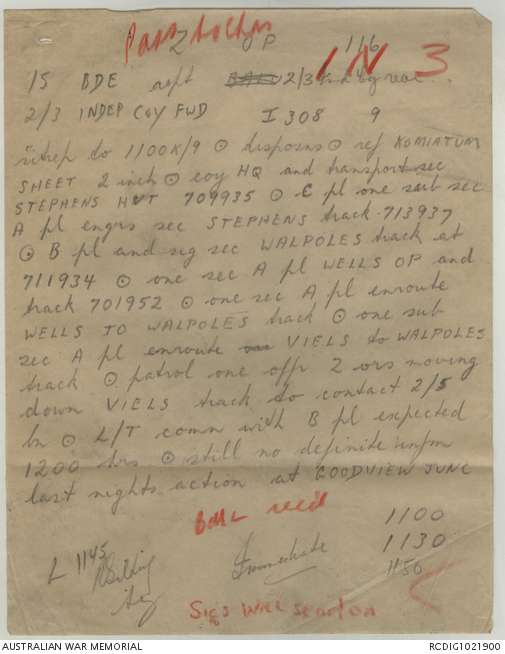 Z OP 116
IN 3
15 BDE rept 2/3
2/3 INDEP COY FWD I 308 9
sitrep to 1100K/9 ⊙ disposns ⊙ ref KOMIATUM
SHEET 2 inch ⊙ coy HQ and transport sec
STEPHENS HUT 709935 ⊙ C pl one sub sec
A pl engrs sec STEPHENS track 713937
⊙ B pl and sig sec WALPOLES track at
711934 ⊙ one sec A pl WELLS OP and
track 701952 ⊙ one sec A pl enroute
WELLS TO WALPOLES track ⊙ one sub
sec A pl enroute VIELS to WALPOLES
track ⊙ patrol one offr 2 ors moving
down VIELS track to contact 2/5
bn ⊙ L/T comn with B pl expected
1200 hrs ⊙ still no definite infm
last nights action at GOODVIEW JUNC
recd
1100
L 1145 Immediate 1130
1150
Sigs
AUSTRALIAN WAR MEMORIAL RCDIG1021900